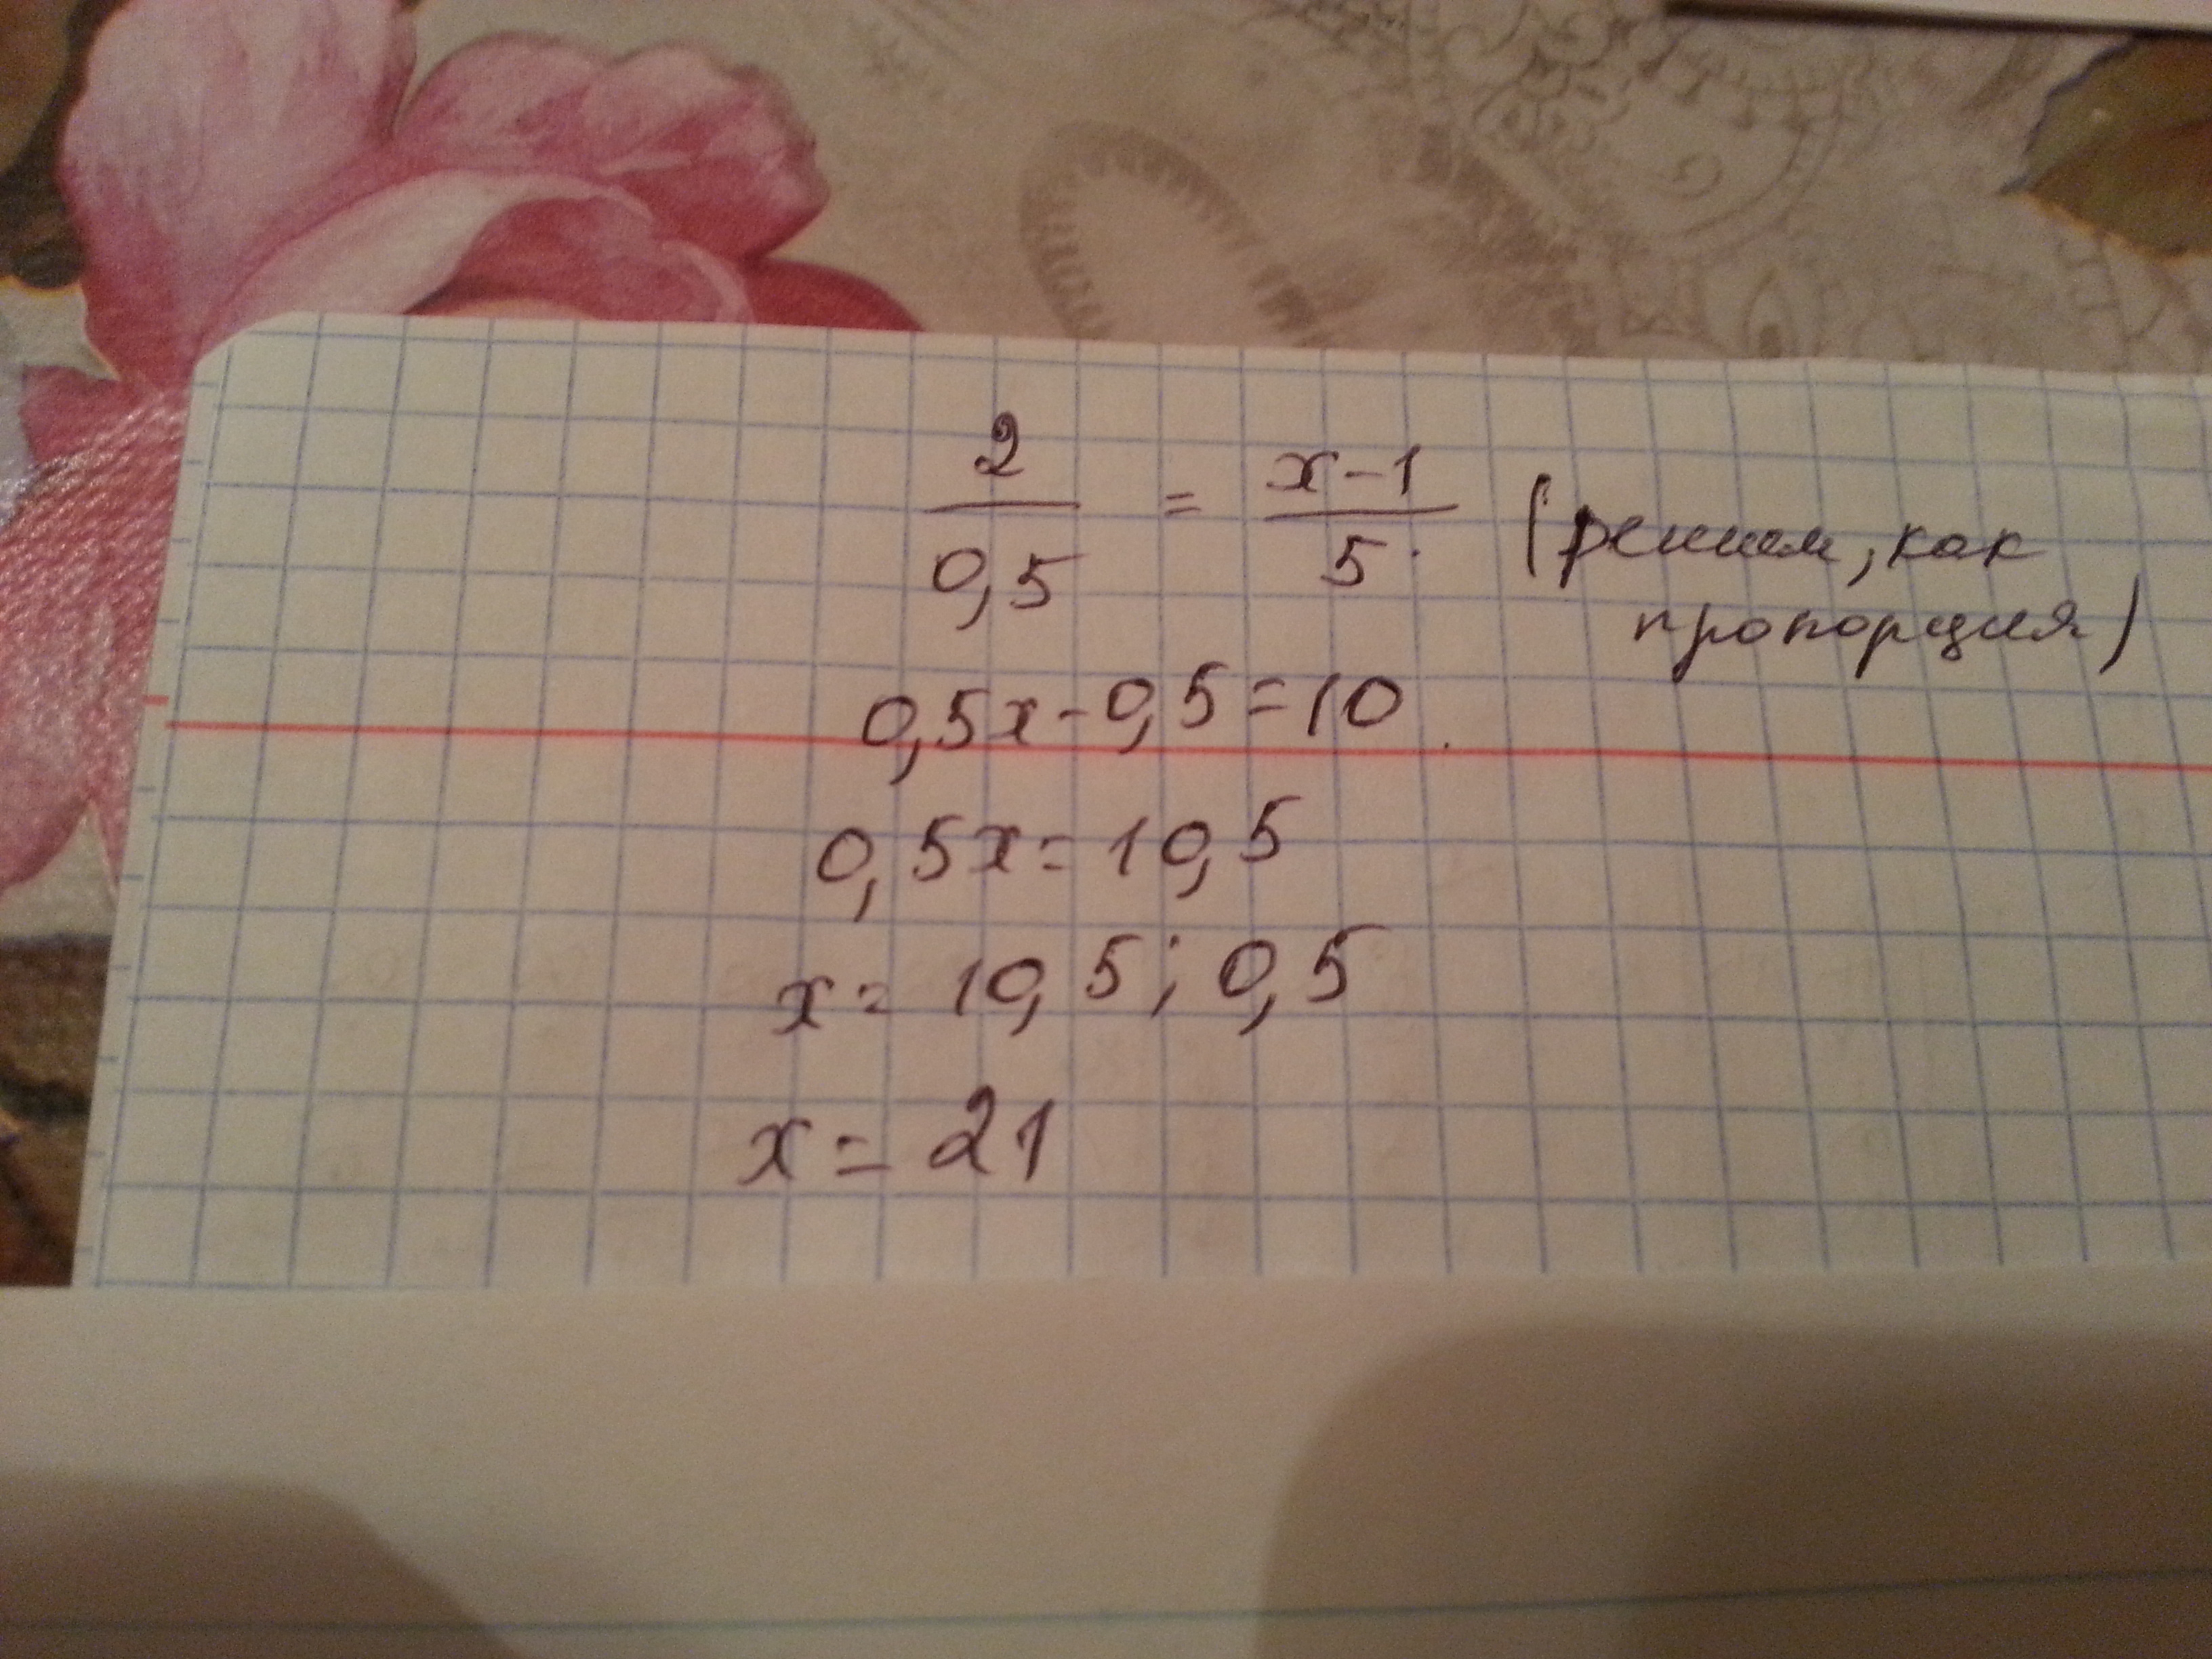 2/0,5 = x-1/5 (решим, как
пропорция)
0,5x-0,5=10
0,5x=10,5
x=10,5:0,5
x=21